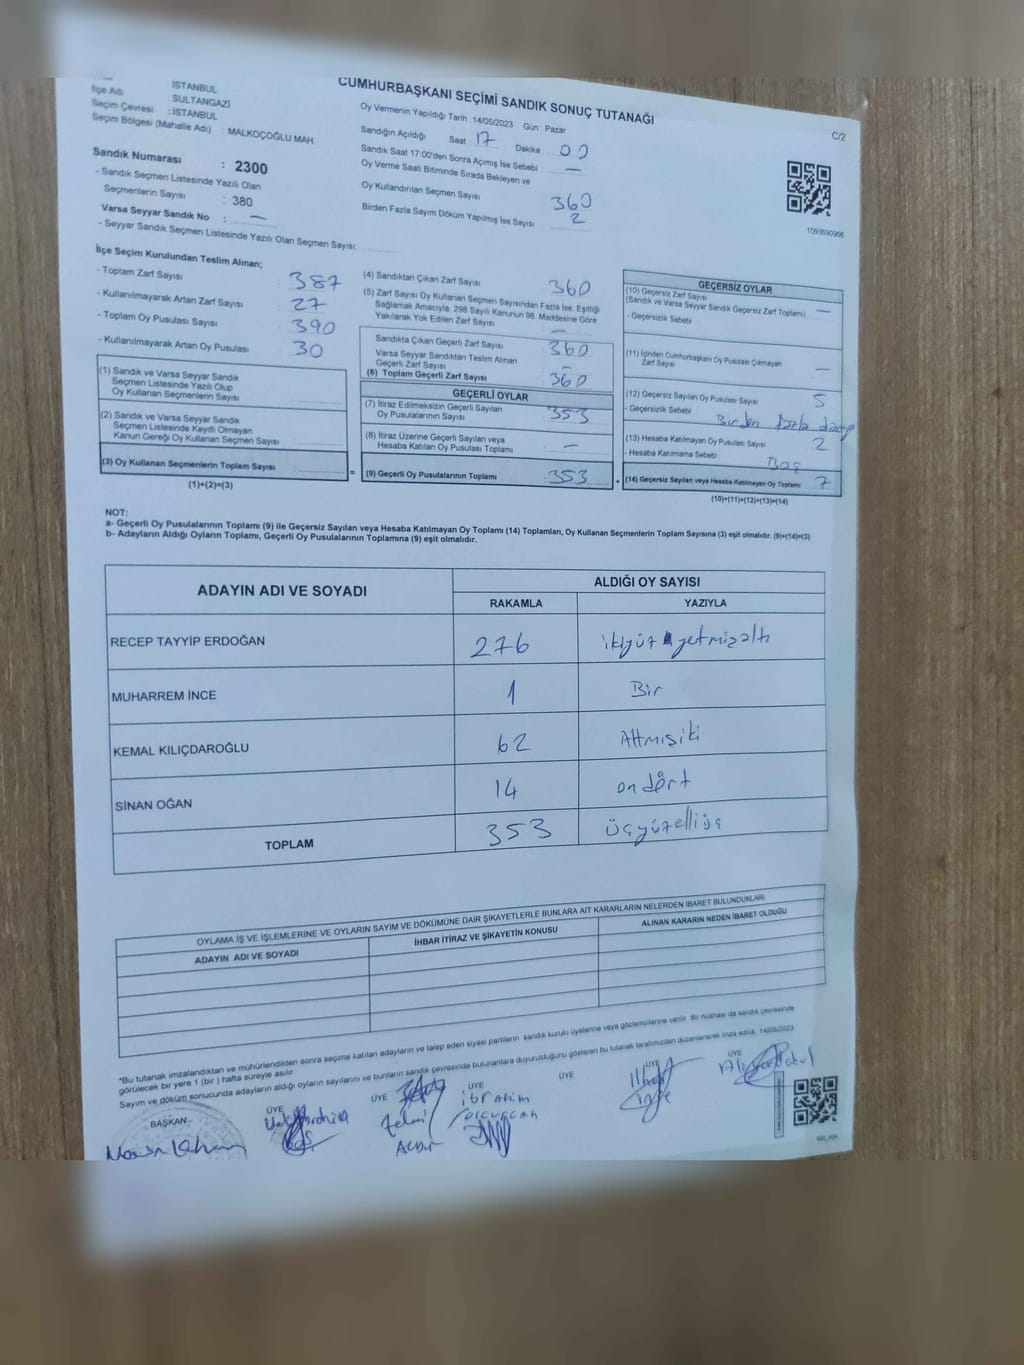 CUMHURBAŞKANI SEÇİMİ SANDIK SONUÇ TUTANAĞI
C/2
İlçe Adı : İSTANBUL
: SULTANGAZİ
Seçim Çevresi : İSTANBUL
Seçim Bölgesi (Mahalle Adı) : MALKOÇOĞLU MAH.
Sandık Numarası : 2300
- Sandık Seçmen Listesinde Yazılı Olan
Seçmenlerin Sayısı : 380
Varsa Seyyar Sandık No : —
- Seyyar Sandık Seçmen Listesinde Yazılı Olan Seçmen Sayısı:
Oy Vermenin Yapıldığı Tarih : 14/05/2023 Gün : Pazar
Sandığın Açıldığı Saat 17 Dakika 00
Sandık Saat 17:00'den Sonra Açımış İse Sebebi : —
Oy Verme Saati Bitiminde Sırada Bekleyen ve
Oy Kullandırılan Seçmen Sayısı : 360
Birden Fazla Sayım Döküm Yapılmış İse Sayısı : 2
1093690966
İlçe Seçim Kurulundan Teslim Alınan;
- Toplam Zarf Sayısı 387
- Kullanılmayarak Artan Zarf Sayısı 27
- Toplam Oy Pusulası Sayısı 390
- Kullanılmayarak Artan Oy Pusulası 30
(1) Sandık ve Varsa Seyyar Sandık
Seçmen Listesinde Yazılı Olup
Oy Kullanan Seçmenlerin Sayısı
(2) Sandık ve Varsa Seyyar Sandık
Seçmen Listesinde Kayıtlı Olmayan
Kanun Gereği Oy Kullanan Seçmen Sayısı
(3) Oy Kullanan Seçmenlerin Toplam Sayısı =
(1)+(2)=(3)
(4) Sandıktan Çıkan Zarf Sayısı 360
(5) Zarf Sayısı Oy Kullanan Seçmen Sayısından Fazla İse, Eşitliği
Sağlamak Amacıyla, 298 Sayılı Kanunun 98. Maddesine Göre
Yakılarak Yok Edilen Zarf Sayısı —
Sandıkta Çıkan Geçerli Zarf Sayısı 360
Varsa Seyyar Sandıktan Teslim Alınan
Geçerli Zarf Sayısı —
(6) Toplam Geçerli Zarf Sayısı 360
GEÇERLİ OYLAR
(7) İtiraz Edilmeksizin Geçerli Sayılan
Oy Pusulalarının Sayısı 353
(8) İtiraz Üzerine Geçerli Sayılan veya
Hesaba Katılan Oy Pusulası Toplamı —
(9) Geçerli Oy Pusulalarının Toplamı 353 +
GEÇERSİZ OYLAR
(10) Geçersiz Zarf Sayısı
(Sandık ve Varsa Seyyar Sandık Geçersiz Zarf Toplamı) —
- Geçersizlik Sebebi
(11) İçinden Cumhurbaşkanı Oy Pusulası Çıkmayan
Zarf Sayısı —
(12) Geçersiz Sayılan Oy Pusulası Sayısı 5
- Geçersizlik Sebebi Birden fazla damga
(13) Hesaba Katılmayan Oy Pusulası Sayısı 2
- Hesaba Katılmama Sebebi Boş
(14) Geçersiz Sayılan veya Hesaba Katılmayan Oy Toplamı 7
(10)+(11)+(12)+(13)=(14)
NOT:
a- Geçerli Oy Pusulalarının Toplamı (9) ile Geçersiz Sayılan veya Hesaba Katılmayan Oy Toplamı (14) Toplamları, Oy Kullanan Seçmenlerin Toplam Sayısına (3) eşit olmalıdır. (9)+(14)=(3)
b- Adayların Aldığı Oyların Toplamı, Geçerli Oy Pusulalarının Toplamına (9) eşit olmalıdır.
ADAYIN ADI VE SOYADI ALDIĞI OY SAYISI
RAKAMLA YAZIYLA
RECEP TAYYİP ERDOĞAN 276 ikiyüz yetmişaltı
MUHARREM İNCE 1 Bir
KEMAL KILIÇDAROĞLU 62 Altmışiki
SİNAN OĞAN 14 ondört
TOPLAM 353 Üçyüzelliüç
OYLAMA İŞ VE İŞLEMLERİNE VE OYLARIN SAYIM VE DÖKÜMÜNE DAİR ŞİKAYETLERLE BUNLARA AİT KARARLARIN NELERDEN İBARET BULUNDUKLARI
ADAYIN ADI VE SOYADI İHBAR İTİRAZ VE ŞİKAYETİN KONUSU ALINAN KARARIN NEDEN İBARET OLDUĞU
"Bu tutanak imzalandıktan ve mühürlendikten sonra seçime katılan adayların ve talep eden siyasi partilerin sandık kurulu üyelerine veya gözlemcilerine verilir. Bir nüshası da sandık çevresinde
görülecek bir yere 1 (bir) hafta süreyle asılır.
Sayım ve döküm sonucunda adayların aldığı oyların sayılarını ve bunların sandık çevresinde bulunanlara duyurulduğunu gösteren bu tutanak tarafımızdan düzenlenerek imza edildi. 14/05/2023
BAŞKAN ÜYE ÜYE ÜYE ÜYE ÜYE ÜYE
İbrahim